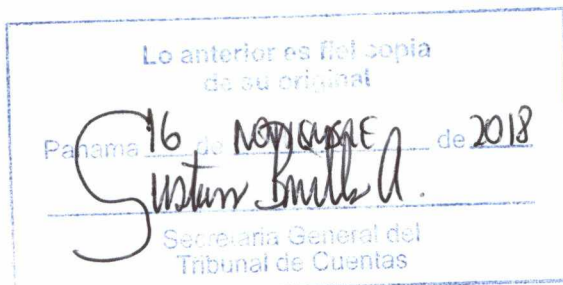 Lo anterior es fiel copia
de su original
Panamá 16 de NOVIEMBRE de 2018
Gustavo
Secretaria General del
Tribunal de Cuentas